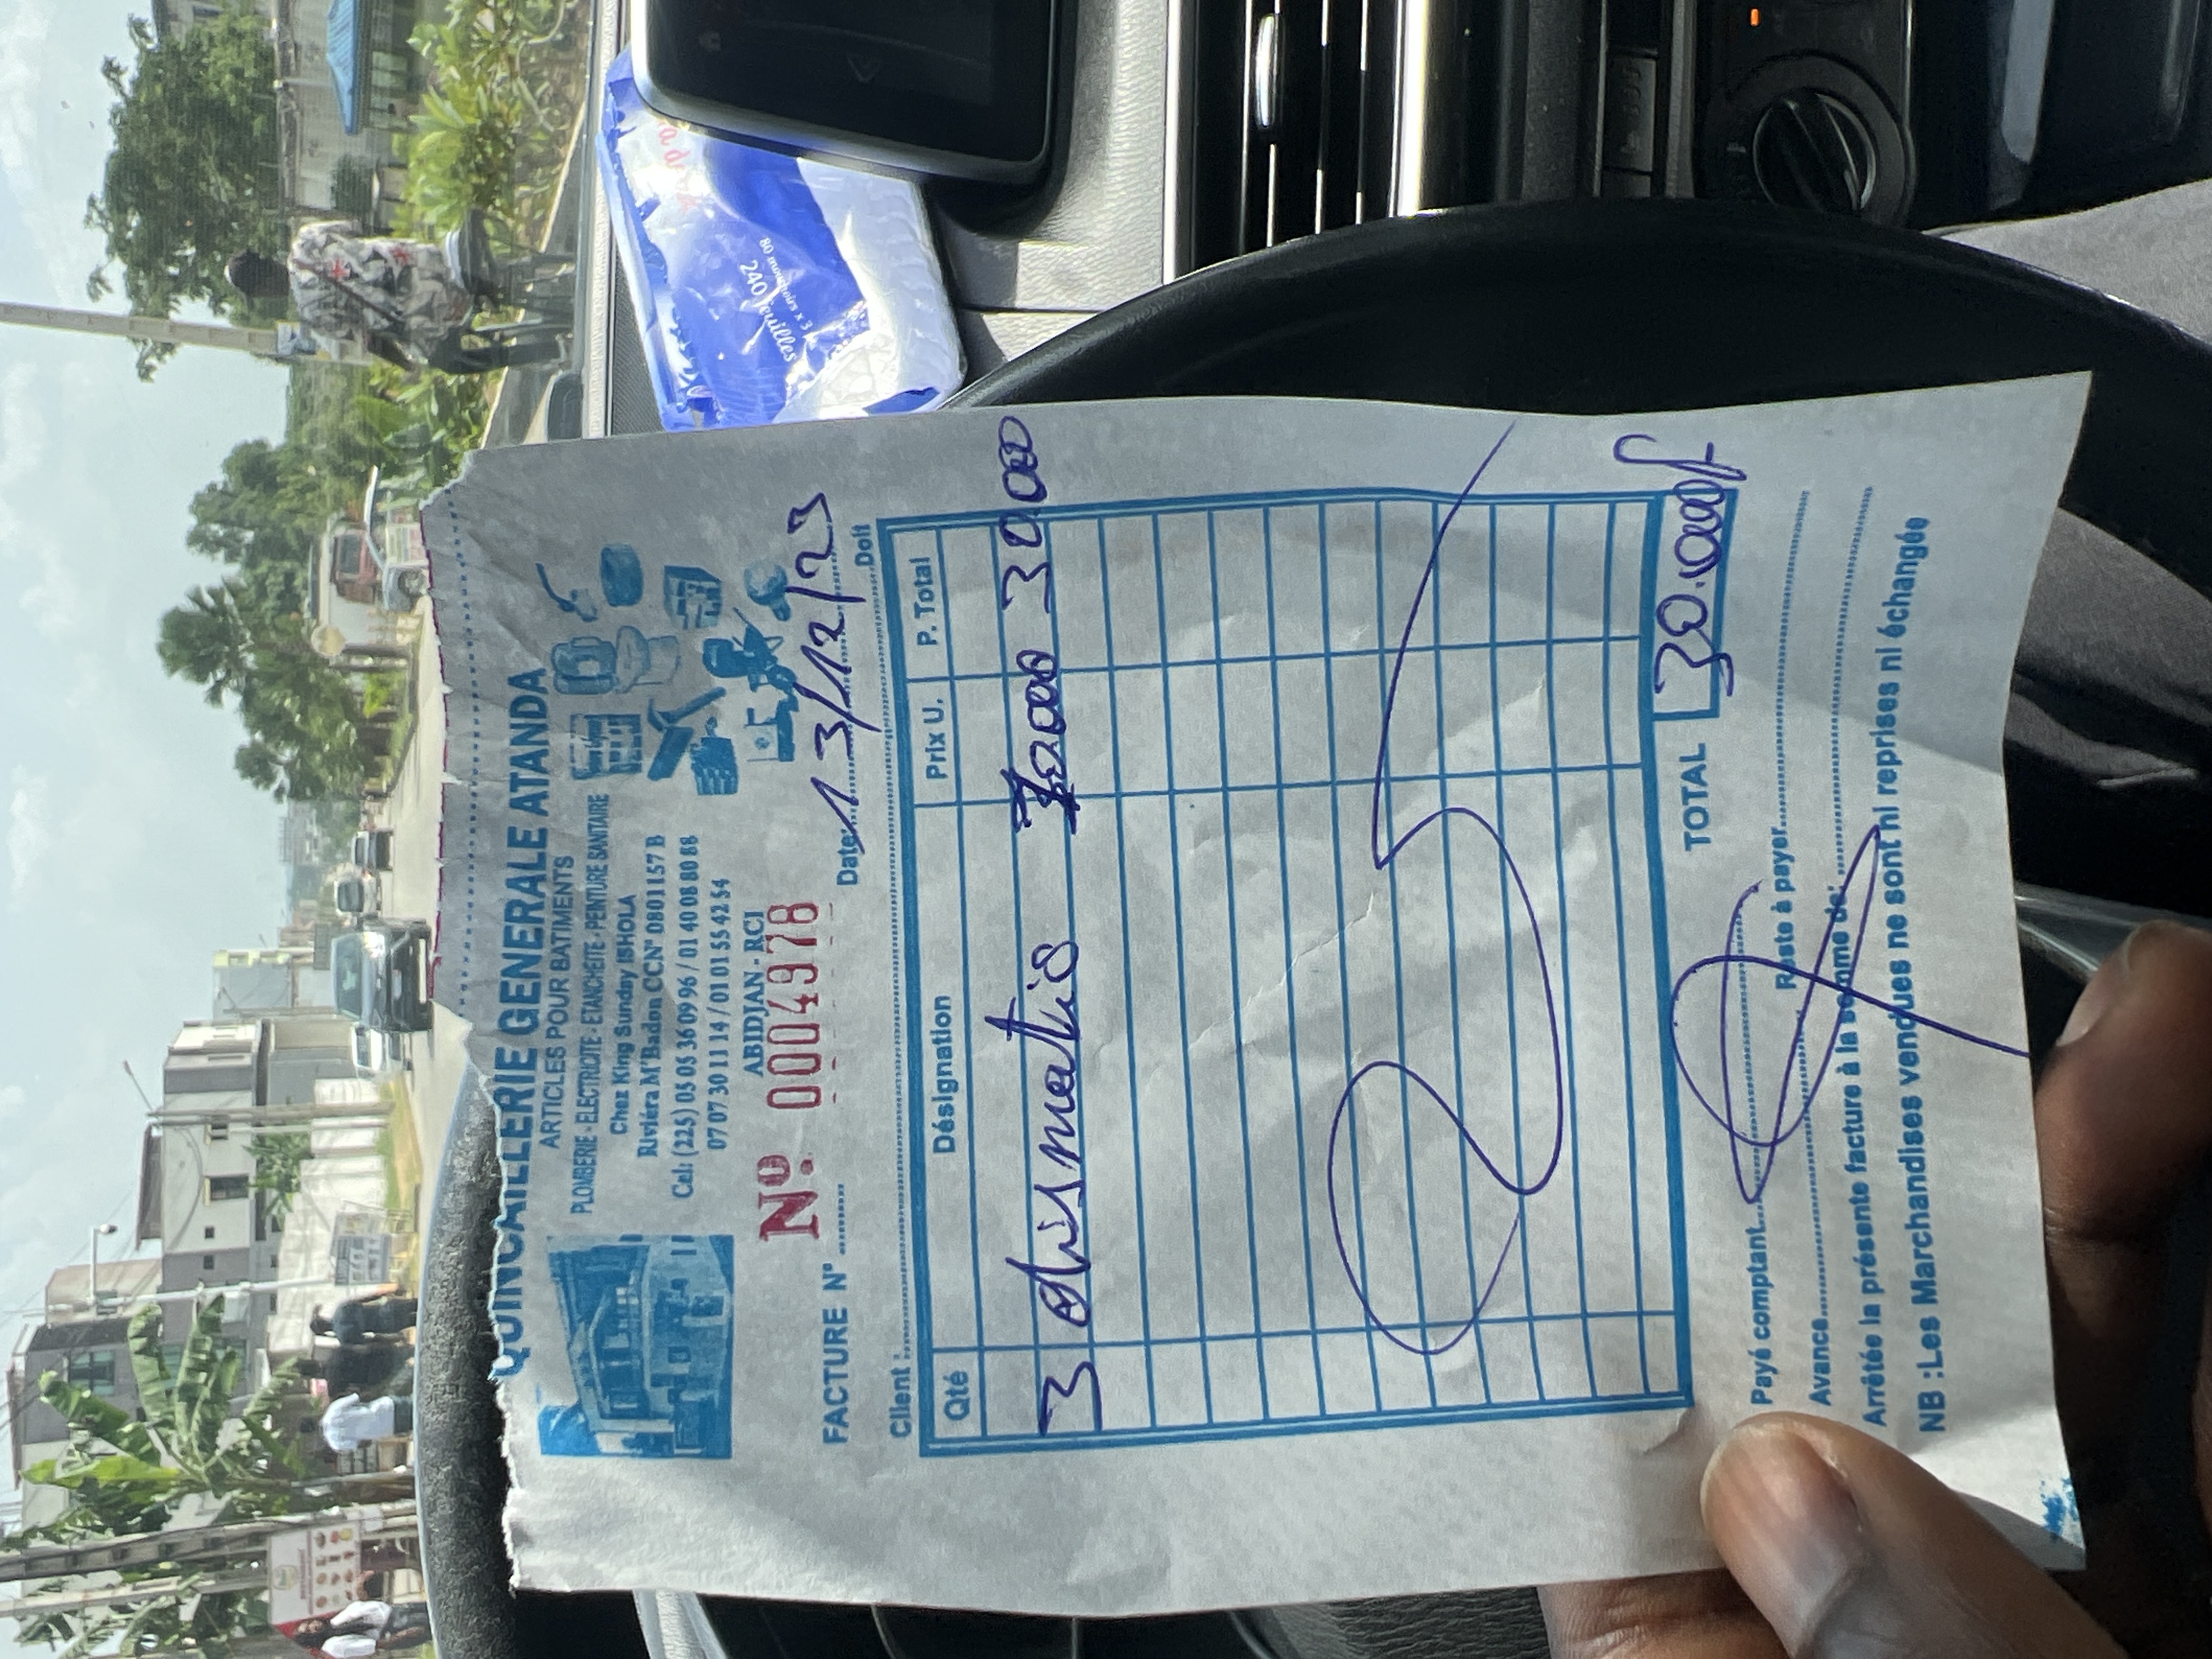 QUINCAILLERIE GENERALE ATANDA
ARTICLES POUR BATIMENTS
PLOMBERIE - ELECTRICITE - ETANCHEITE - PEINTURE SANITAIRE
Chez King Sunday ISHOLA
Riviéra M'Badon CCN° 0801157 B
Cel: (225) 05 05 36 09 96 / 01 40 08 80 88
07 07 30 11 14 / 01 01 55 42 54
ABIDJAN - RCI
N° 0004978
FACTURE N° ..........
Date: 13/12/23
Doit
Client :
Qté Désignation Prix U. P. Total
3 dismatic 10.000 30.000
TOTAL 30.000f
Payé comptant
Reste à payer
Avance
Arrêtée la présente facture à la somme de:
NB :Les Marchandises vendues ne sont ni reprises ni échangée
RESTAURANT
80 mouchoirs x 3
240 feuilles